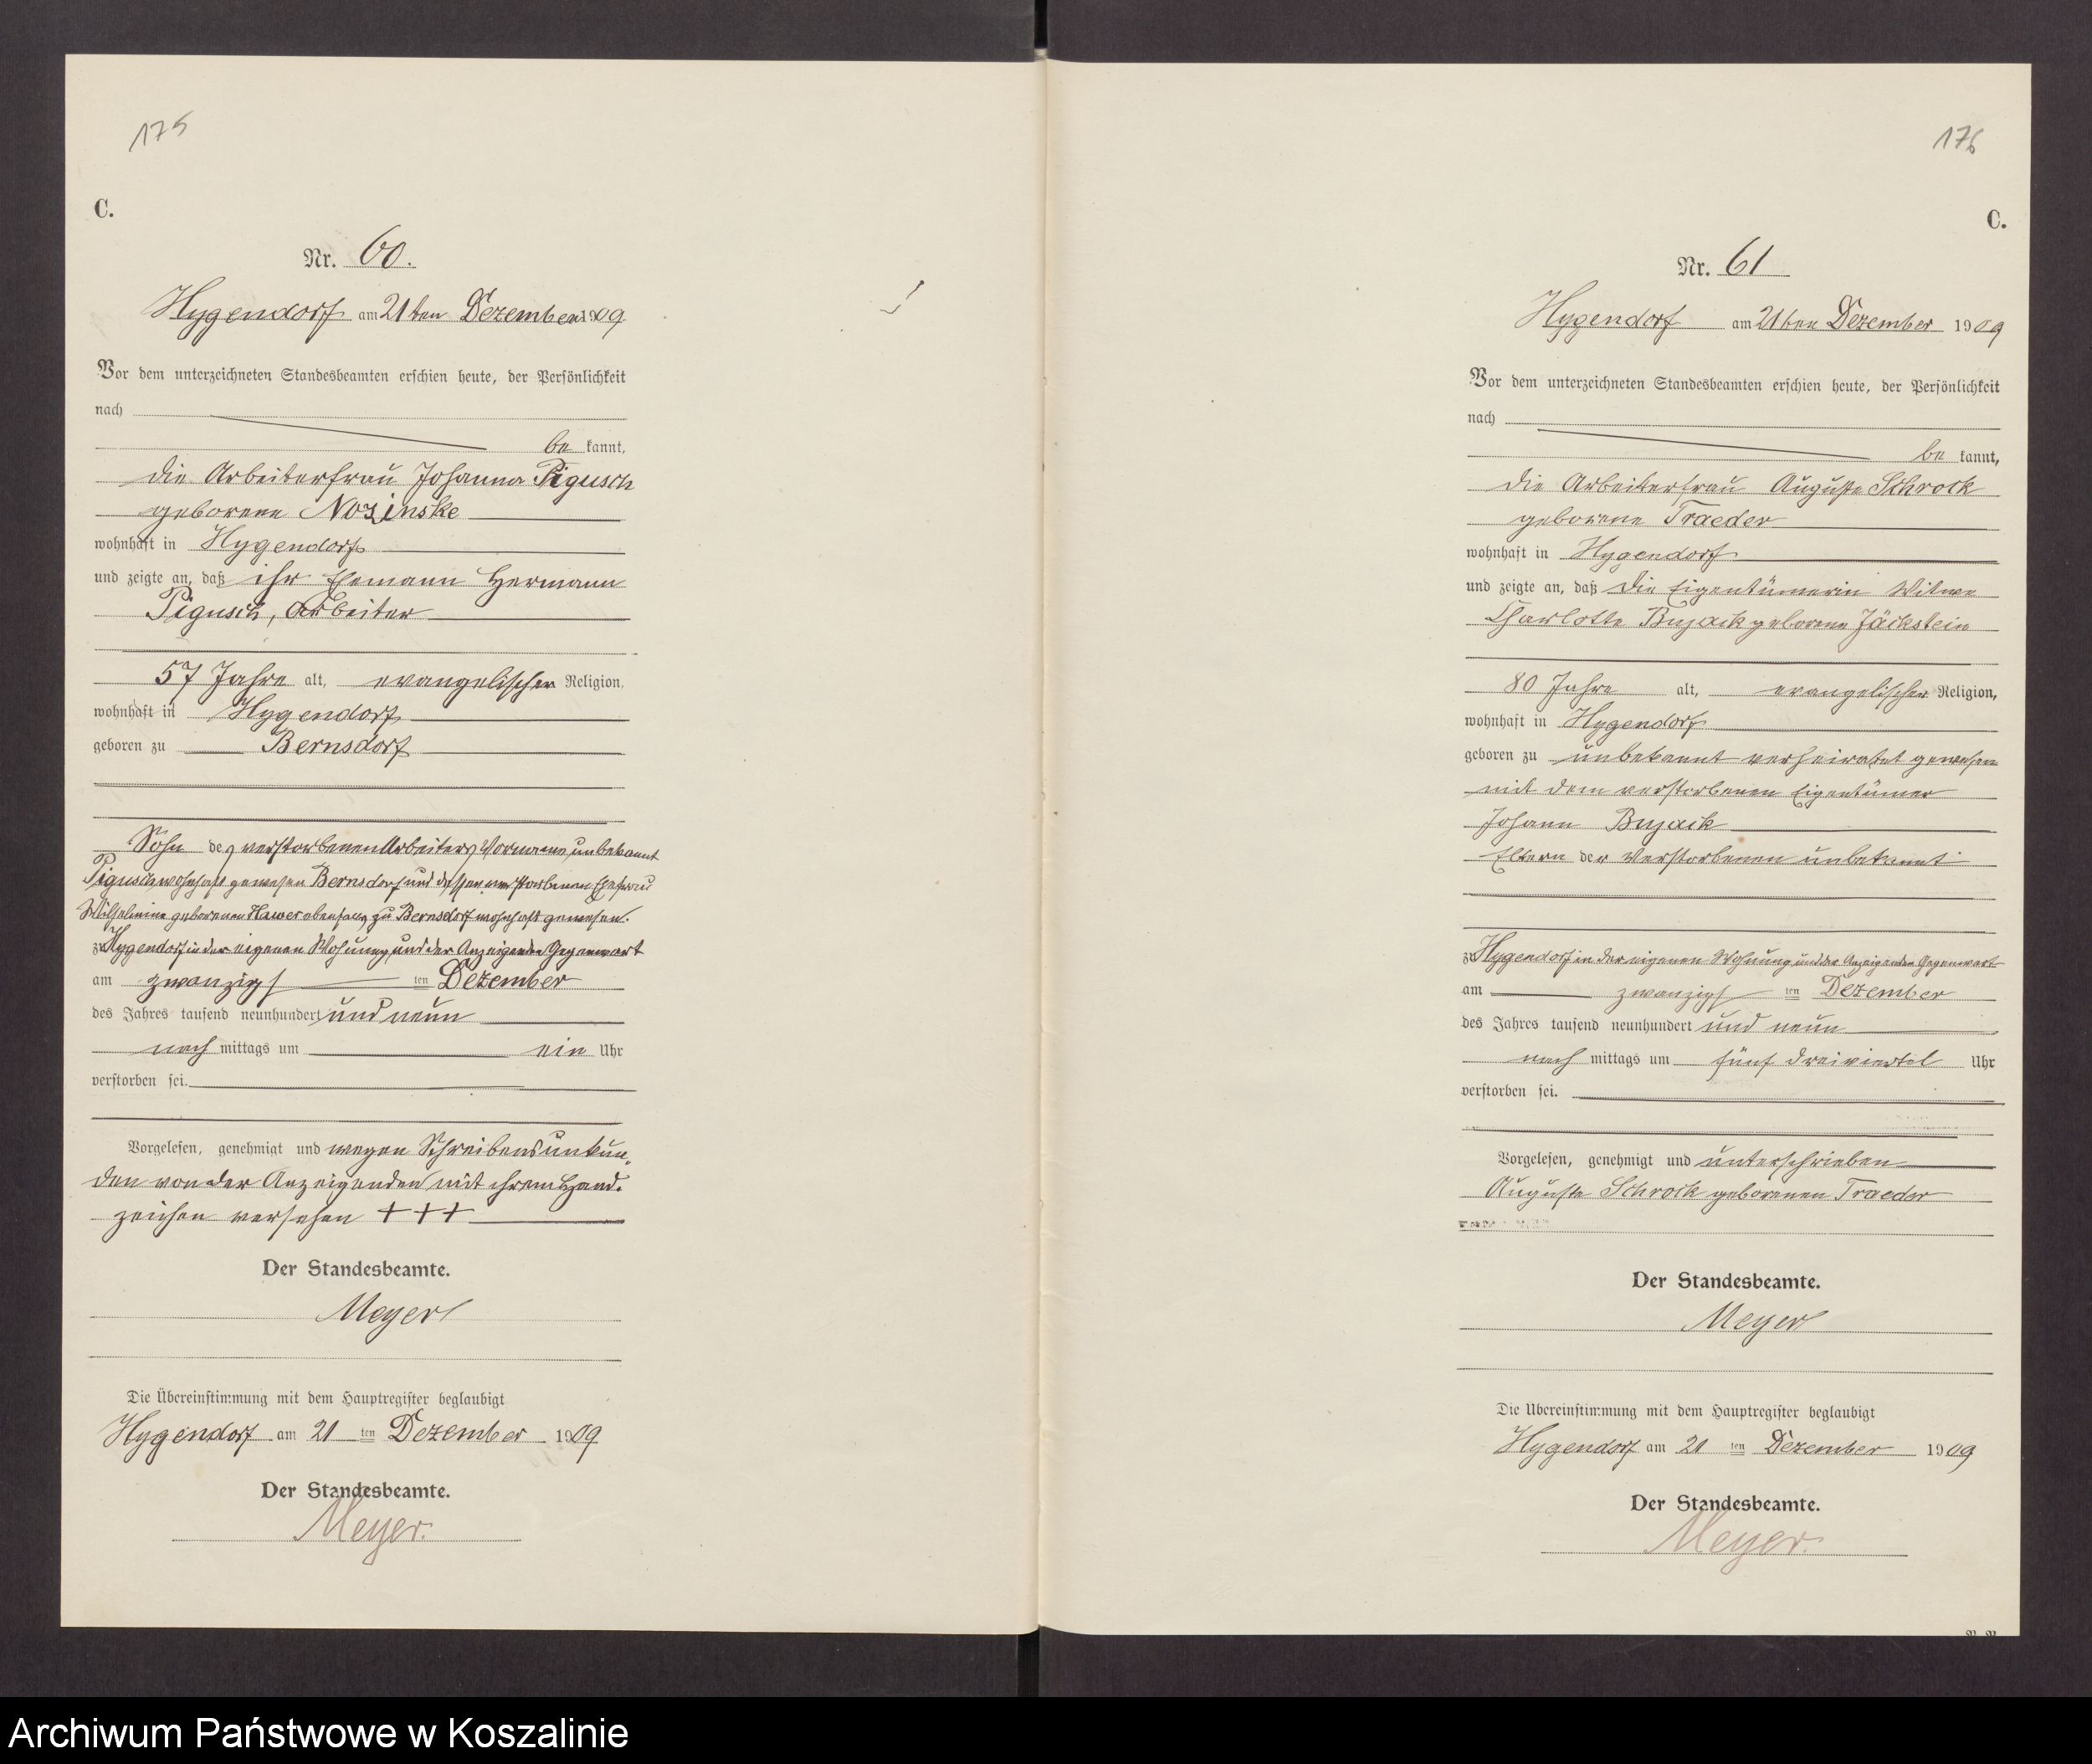 175
C.
Nr. 60.
Hygendorf am 21ten Dezember 1909
Vor dem unterzeichneten Standesbeamten erschien heute, der Persönlichkeit
nach
be kannt,
die Arbeiterfrau Johanna Pigusch
geborene Nozinske
wohnhaft in Hygendorf
und zeigte an, daß ihr Ehemann Hermann
Pigusch, Arbeiter
57 Jahre alt, evangelischer Religion,
wohnhaft in Hygendorf
geboren zu Bernsdorf
Sohn des verstorbenen Arbeiters Vorname unbekannt
Pigusch wohnhaft gewesen Bernsdorf und dessen verstorbenen Ehefrau
Wilhelmine geborenen Hawer ebenfalls zu Bernsdorf wohnhaft gewesen.
zu Hygendorf in der eigenen Wohnung und der Anzeigenden Gegenwart
am zwanzigsten Dezember
des Jahres tausend neunhundert und neun
nach mittags um ein Uhr
verstorben sei.
Vorgelesen, genehmigt und wegen Schreibensunkun-
den von der Anzeigenden mit ihrem Hand-
zeichen versehen +++
Der Standesbeamte.
Meyer
Die Übereinstimmung mit dem Hauptregister beglaubigt
Hygendorf am 21 ten Dezember 1909
Der Standesbeamte.
Meyer.
176
C.
Nr. 61
Hygendorf am 21ten Dezember 1909
Vor dem unterzeichneten Standesbeamten erschien heute, der Persönlichkeit
nach
be kannt,
die Arbeiterfrau Auguste Schrock
geborene Traeder
wohnhaft in Hygendorf
und zeigte an, daß die Eigentümerin Witwe
Charlotte Bujack geborene Jäckstein
80 Jahre alt, evangelischer Religion,
wohnhaft in Hygendorf
geboren zu unbekannt verheiratet gewesen
mit dem verstorbenen Eigentümer
Johann Bujack
Eltern der Verstorbenen unbekannt
zu Hygendorf in der eigenen Wohnung und der Anzeigenden Gegenwart
am zwanzigsten Dezember
des Jahres tausend neunhundert und neun
nach mittags um fünf dreiviertel Uhr
verstorben sei.
Vorgelesen, genehmigt und unterschrieben
Auguste Schrock geborenen Traeder
Der Standesbeamte.
Meyer
Die Übereinstimmung mit dem Hauptregister beglaubigt
Hygendorf am 21 ten Dezember 1909
Der Standesbeamte.
Meyer.
Archiwum Państwowe w Koszalinie